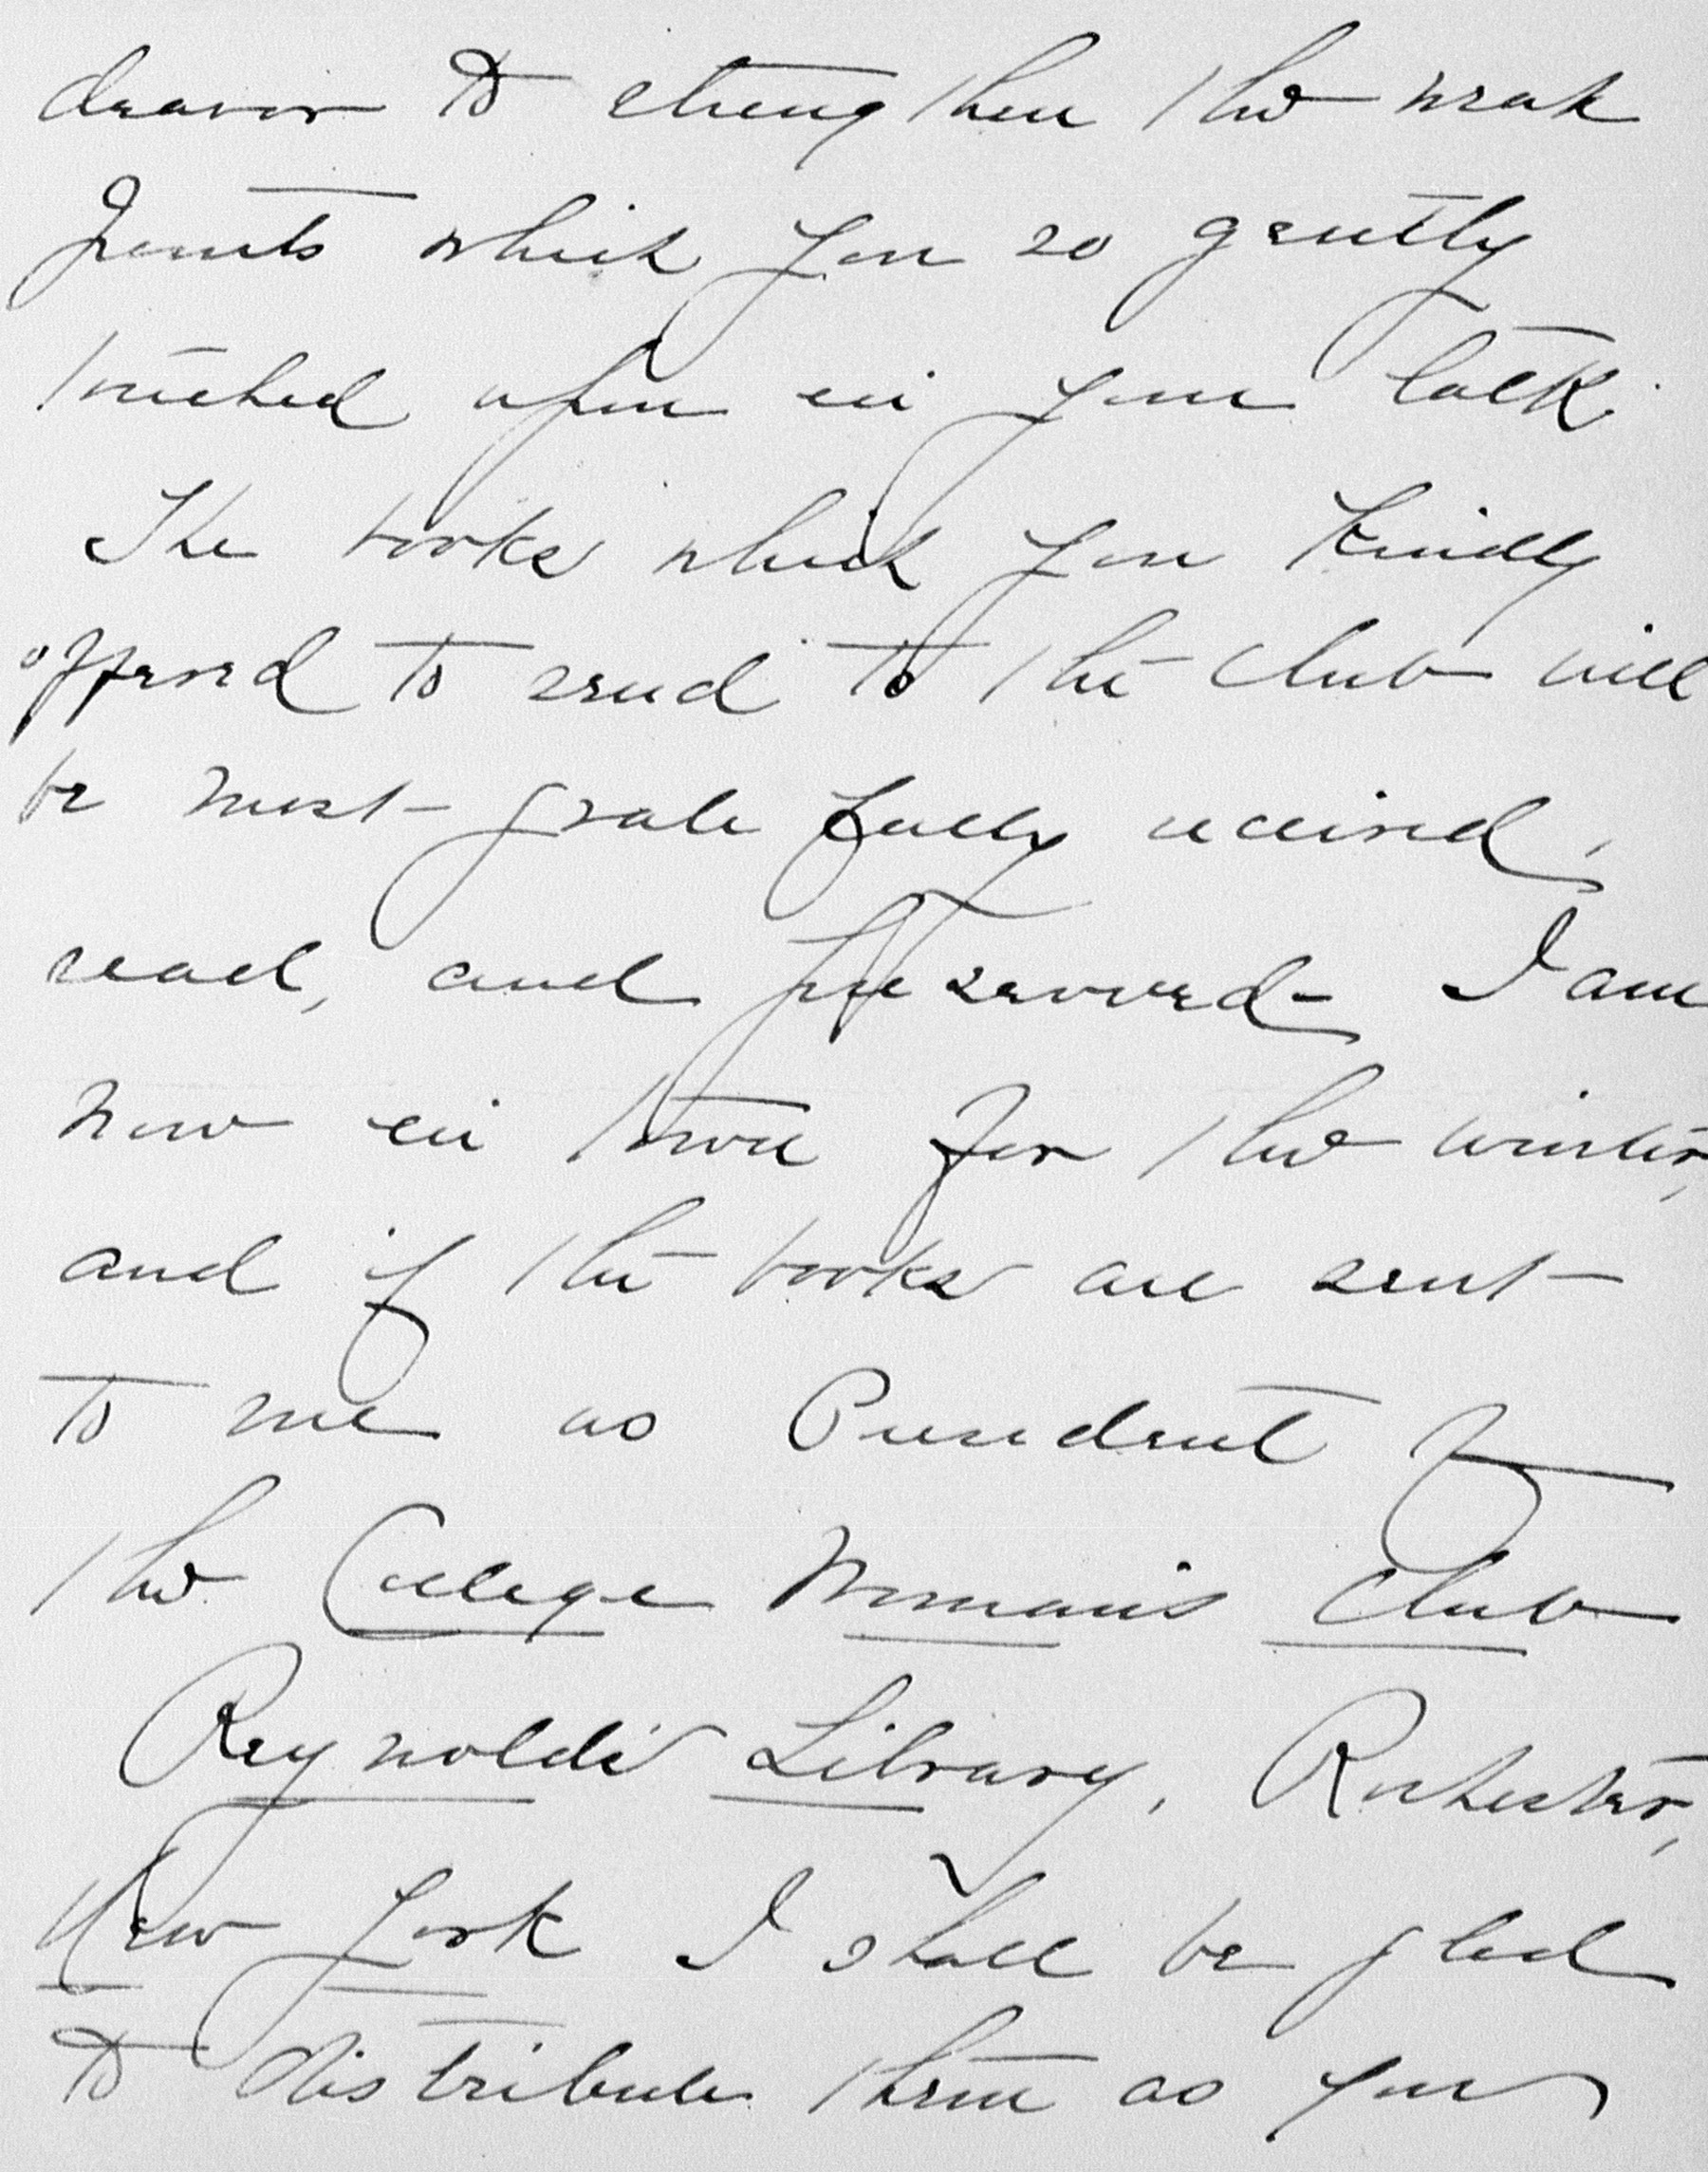 deavor to strengthen the weak
points which you so gently
touched upon in your talk.
The books which you kindly
offered to send to the Club will
be most gratefully received,
read, and preserved - I am
now in town for the winter,
and if the books are sent
to me as President of
the College Woman's Club
Reynolds' Library, Rochester,
New York I shall be glad
to distribute them as you